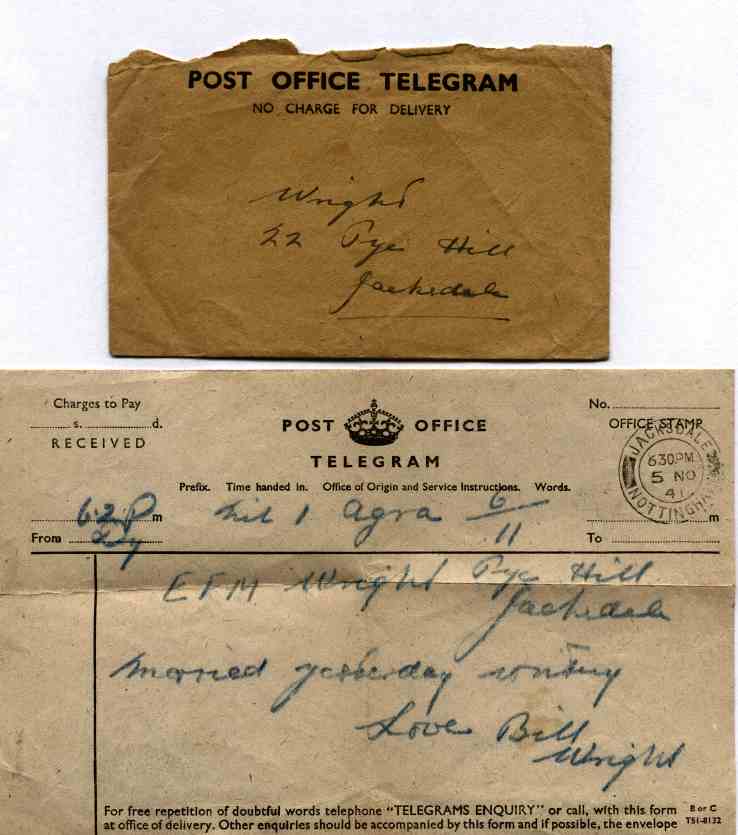 POST OFFICE TELEGRAM
NO CHARGE FOR DELIVERY
Wright
22 Pye Hill
Jacksdale
Charges to Pay
s. d.
RECEIVED
POST OFFICE
TELEGRAM
No.
OFFICE STAMP
JACKSDALE
630PM
5 NO
41
NOTTINGHAM
Prefix. Time handed in. Office of Origin and Service Instructions. Words.
6.2 P m
1 Agra 6/11
m
From
Dy
To
EFM Wright Pye Hill
Jacksdale
Married yesterday writing
Love Bill
Wright
For free repetition of doubtful words telephone "TELEGRAMS ENQUIRY" or call, with this form
at office of delivery. Other enquiries should be accompanied by this form and if possible, the envelope
B or C
TSI-8132